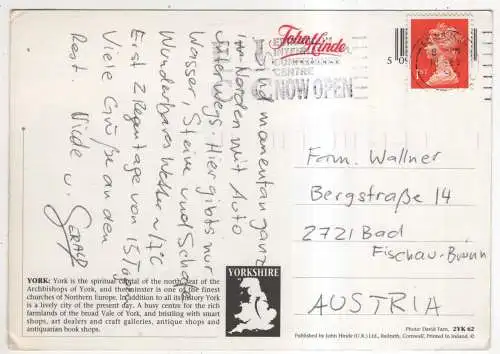 Sind momentan ganz
im Norden mit Auto
unterwegs. Hier gibts nur
Wasser, Steine und Schafe
Wunderbares Wetter ~17°C
Erst 2 Regentage von 15 Tagen
Viele Grüße an den
Rest.
u. GERALD
John Hinde
CENTRE
NOW OPEN
1ST
Fam. Wallner
Bergstraße 14
2721 Bad
Fischau-Brunn
AUSTRIA
YORK: York is the spiritual capital of the north, seat of the
Archbishops of York, and the minster is one of the finest
churches of Northern Europe. In addition to all its history York
is a lively city of the present day. A busy centre for the rich
farmlands of the broad Vale of York, and bristling with smart
shops, art dealers and craft galleries, antique shops and
antiquarian book shops.
YORKSHIRE
Photo: David Tarn. 2YK 62
Published by John Hinde (U.K.) Ltd., Redruth, Cornwall. Printed in Ireland. ©